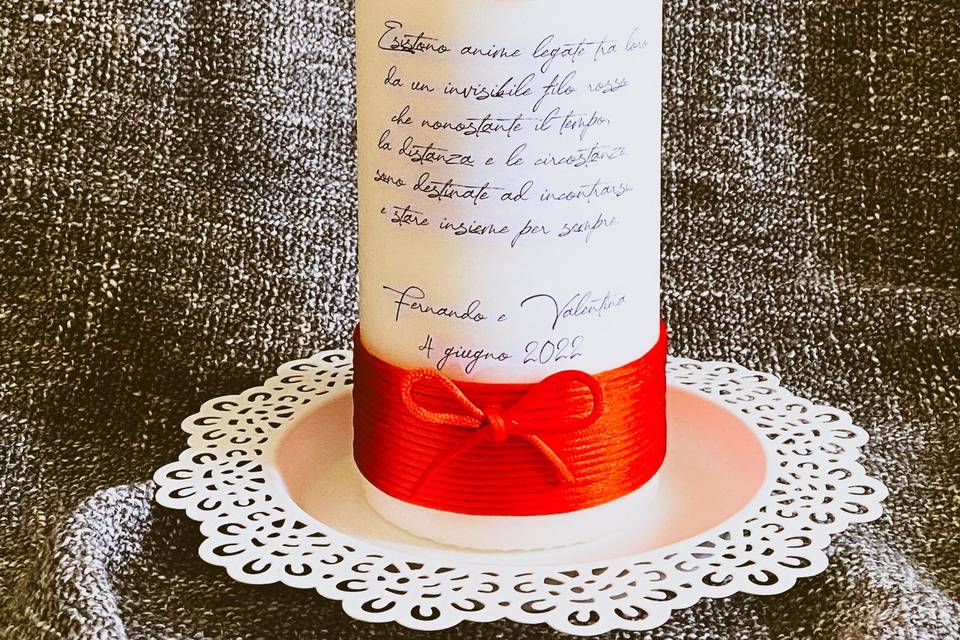 Esistono anime legate tra loro
da un invisibile filo rosso
che nonostante il tempo,
la distanza e le circostanze
sono destinate ad incontrarsi
e stare insieme per sempre.
Fernando e Valentina
4 giugno 2022